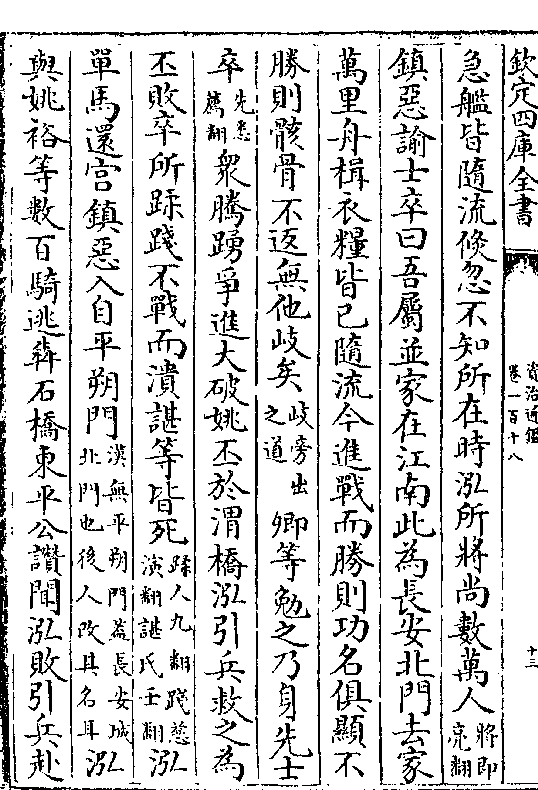 欽定四庫全書
資治通鑑
卷一百十八
十三
急艦皆隨流倐忽不知所在時泓所將尚數萬人將即亮翻
鎮惡諭士卒曰吾屬並家在江南此為長安北門去家
萬里舟楫衣糧皆已隨流今進戰而勝則功名俱顯不
勝則骸骨不返無他岐矣岐旁出之道卿等勉之乃身先士
卒先悉薦翻衆騰踴爭進大破姚丕於渭橋泓引兵救之為
丕敗卒所蹂踐不戰而潰諶等皆死蹂人九翻踐慈演翻諶氏壬翻泓
單馬還宫鎮惡入自平朔門漢無平朔門蓋長安城北門也後人改其名耳泓
與姚裕等數百騎逃犇石橋東平公讚聞泓敗引兵赴